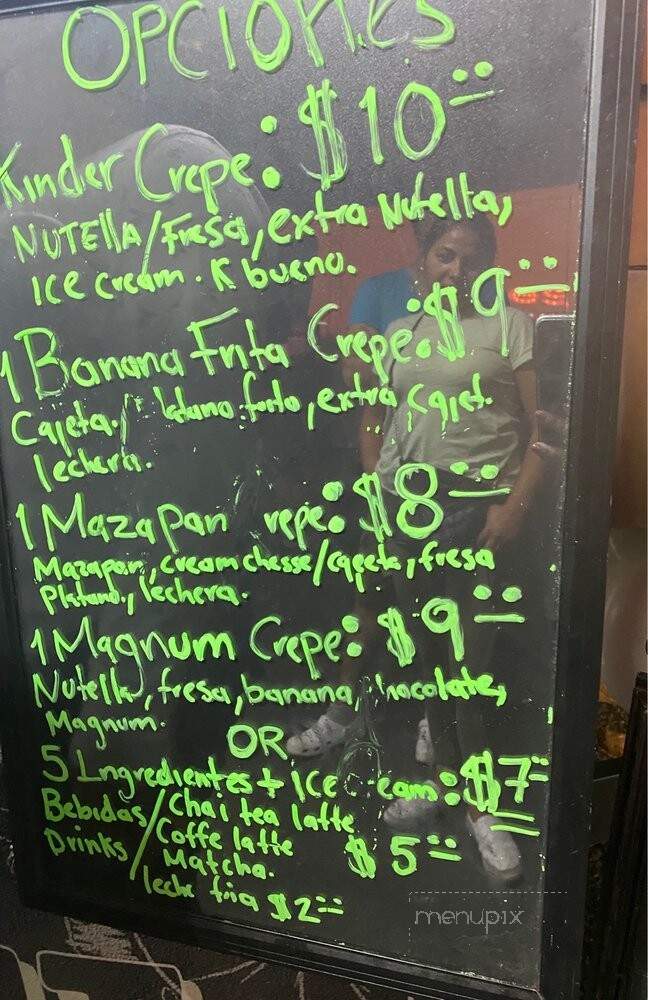 OPCIONES
Kinder Crepe: $10
NUTELLA/Fresa, extra Nutella,
Ice cream. K bueno.
1 Banana Frita Crepe: $9
Cajeta./ extra
lechera.
1 Mazapan repe: $8
Mazapan, cream chesse/cajeta, fresa
Platano, lechera.
1 Magnum Crepe: $9
Nutella, fresa, banana, hocolate,
Magnum.
OR
5 Ingredientes + Ice eam: $7
Bebidas/ Chai tea latte
Drinks/ Coffe latte $5
Matcha.
leche fria $2
menupix